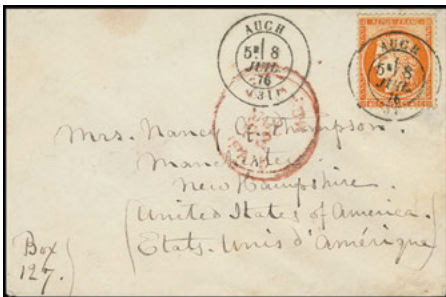 AUCH
5E/ 8
JUIL
76
(31)
REPUB. FRANC.
AUCH
5E/ 8
JUIL.
76
Mrs. Nancy E. Thompson.
Manchester
New Hampshire.
(United States of America.
(Etats-Unis d'Amérique)
Box
127.)